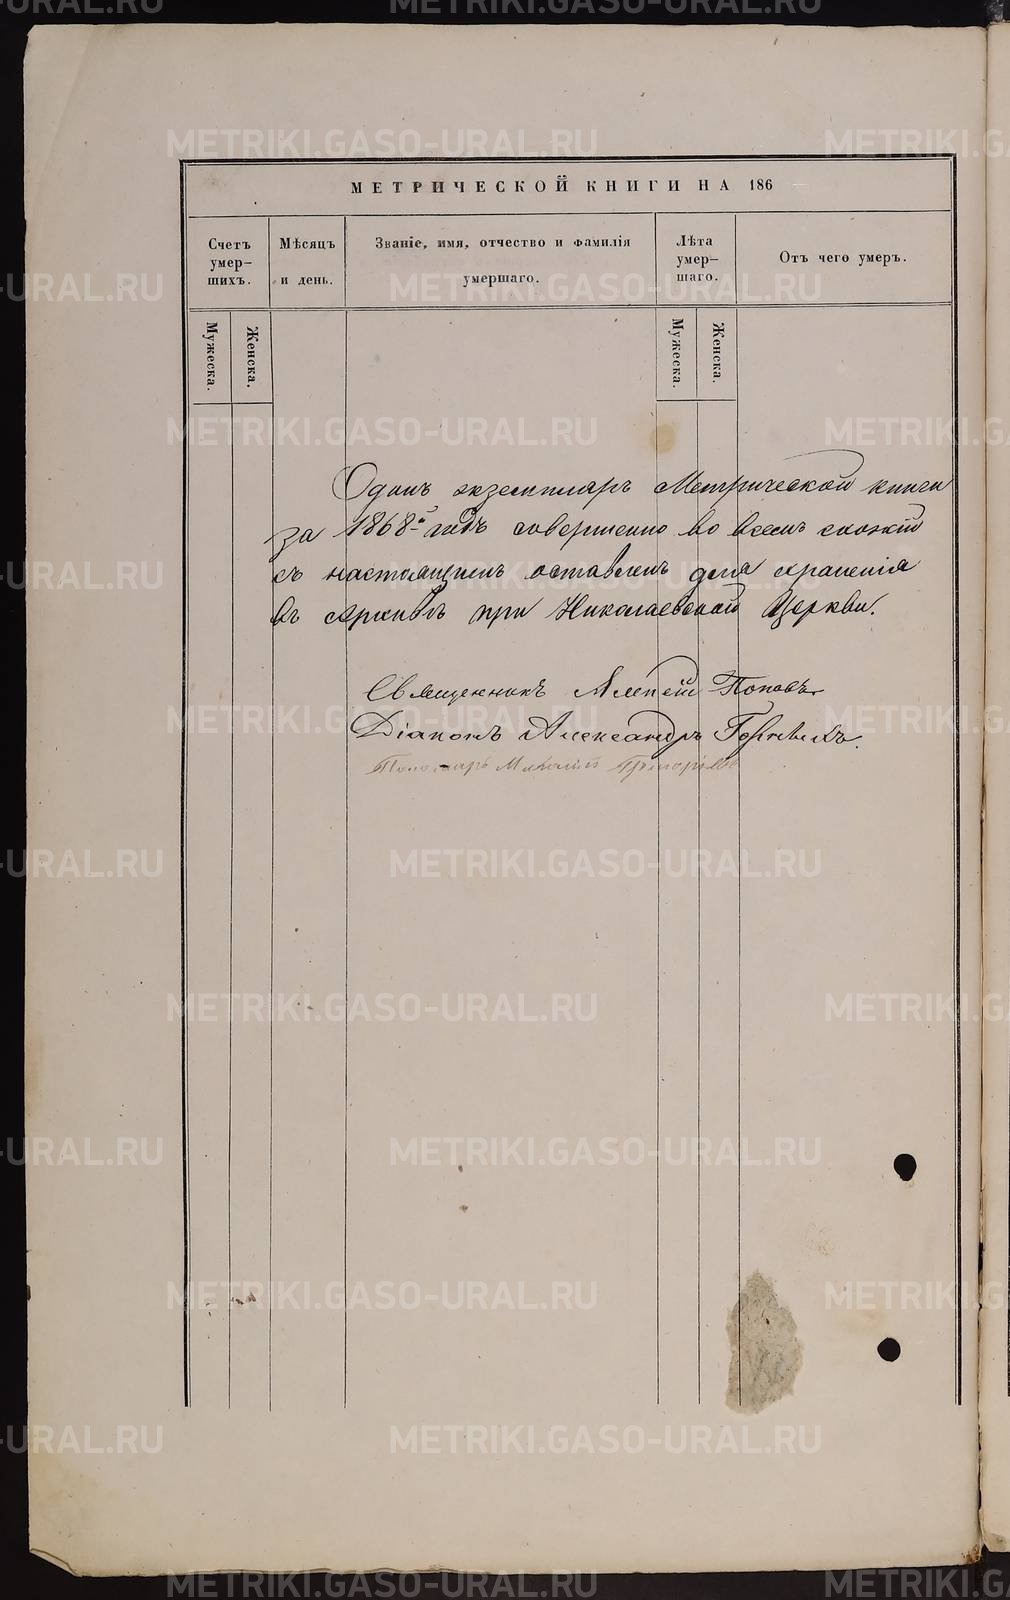 МЕТРИЧЕСКОЙ КНИГИ НА 186
Счетъ умер-шихъ.
Мѣсяцъ и день.
Званіе, имя, отчество и фамилія умершаго.
Лѣта умер-шаго.
Отъ чего умеръ.
Мужеска.
Женска.
Мужеска.
Женска.
Одинъ экземпляръ Метрической книги
за 1868й годъ совершенно во всемъ схожій
съ настоящимъ оставленъ для храненія
въ Архивѣ при Николаевской Церкви.
Священникъ Алексій Поповъ
Діаконъ Александръ
Пономарь
METRIKI.GASO-URAL.RU